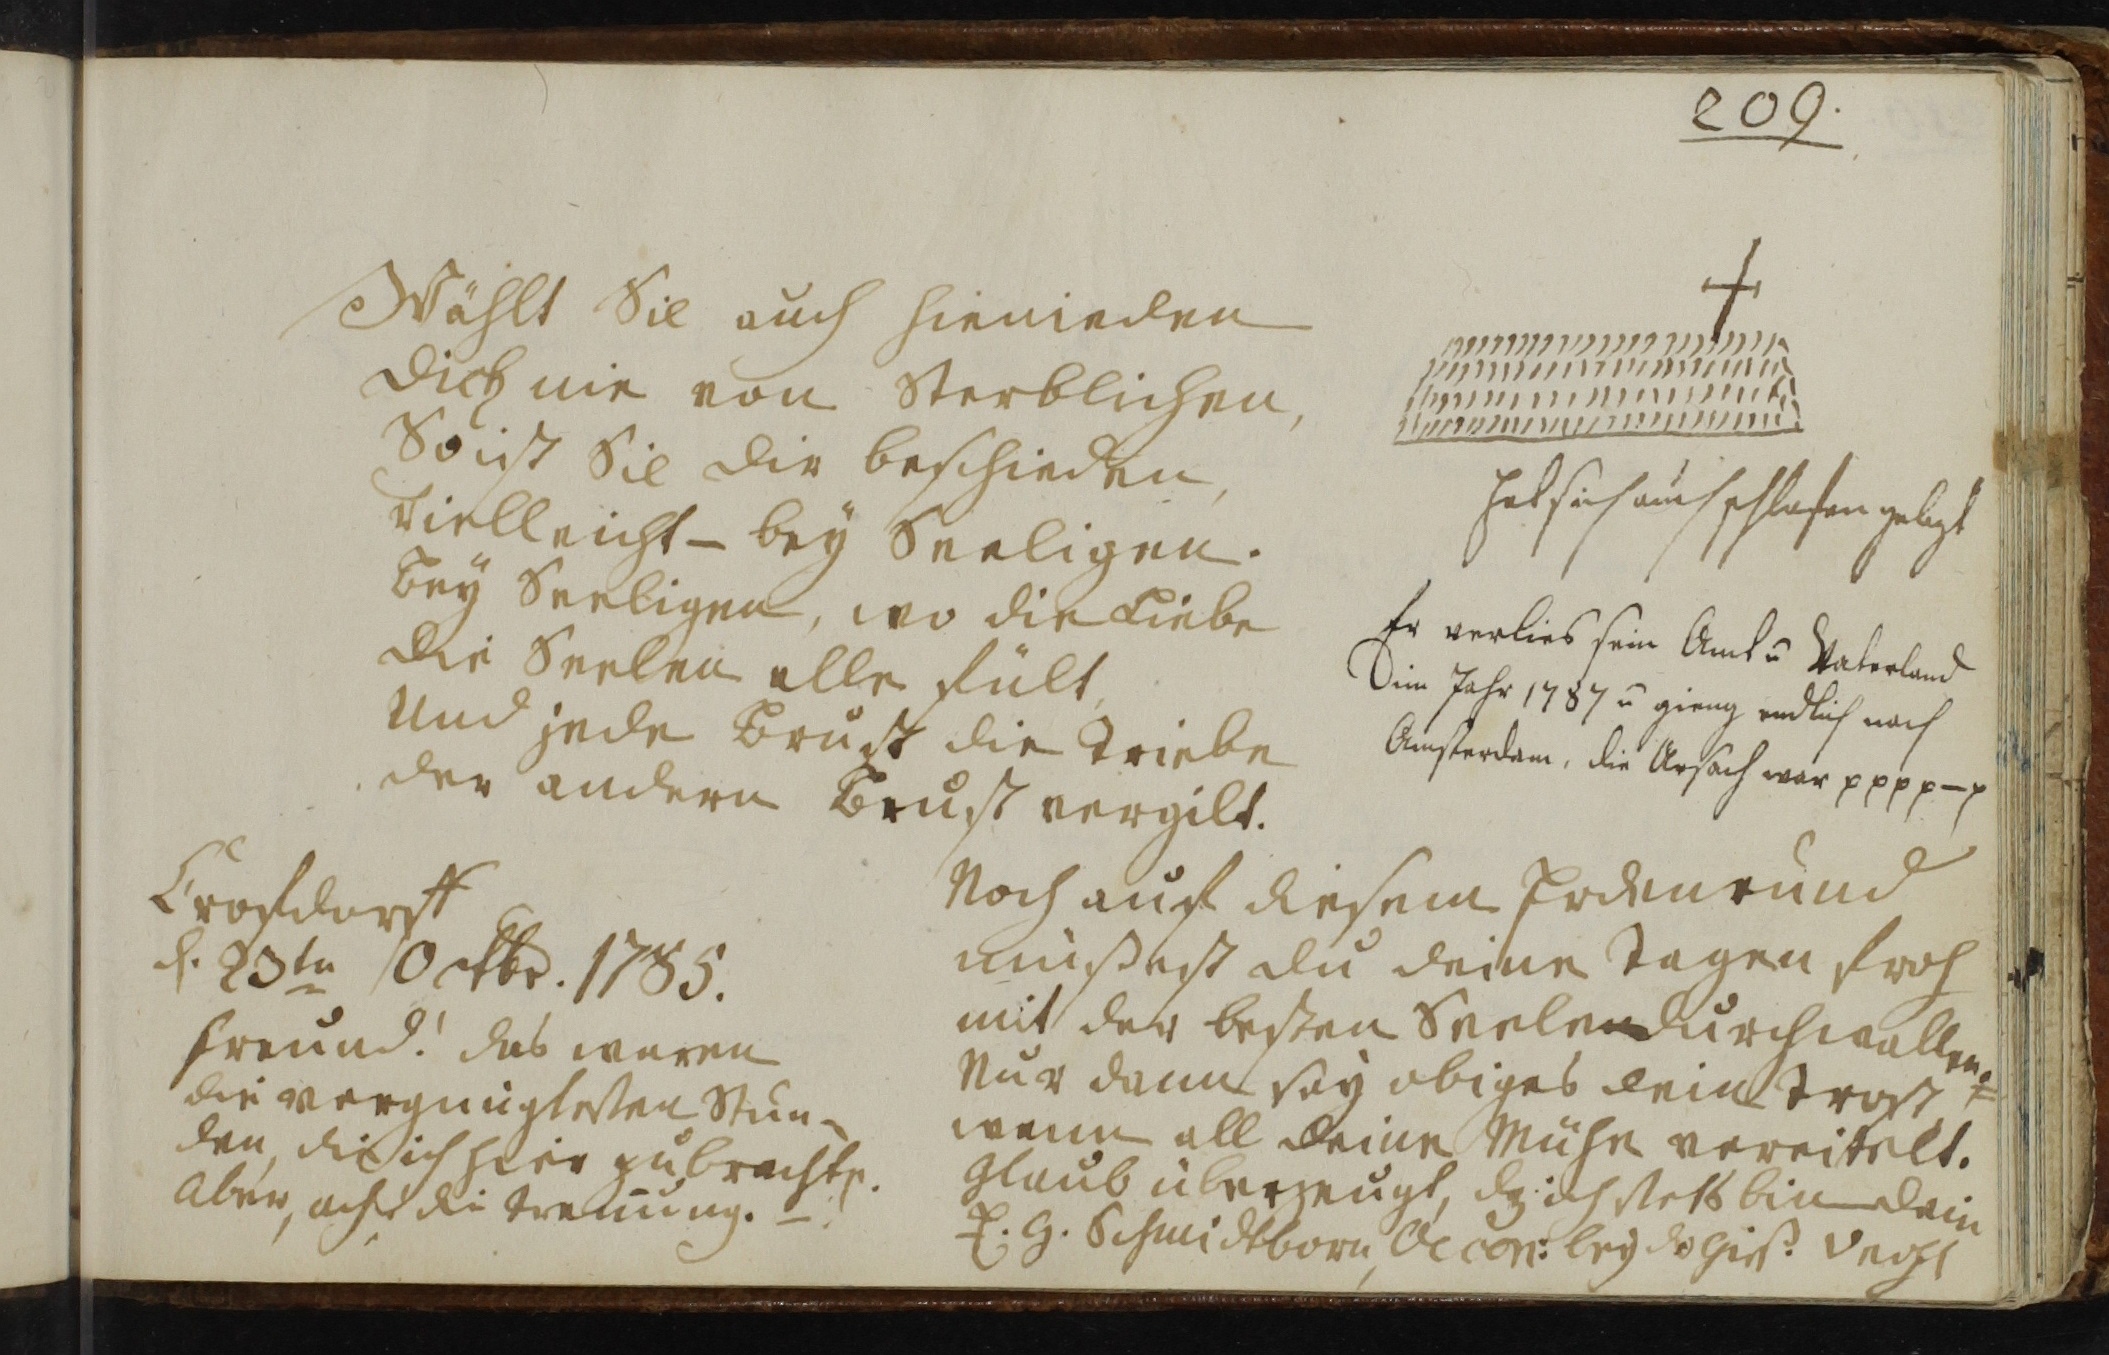 209.
Wählt Sie auch hienieden
dich nie von Sterblichen,
So ist Sie dir beschieden,
vielleicht – bey Seeligen.
Bey Seeligen, wo die Liebe
die Seelen alle füllt,
Und jede Brust die Triebe
der andern Brust vergilt.
hat sich auch schlafen gelegt
Er verlies sein Amt u Vaterland
im Jahr 1787 u gieng endlich nach
Amsterdam, die Ursach war
Crofdorff
d. 23tn Octbr. 1785.
Freund! das waren
die vergnügtesten Stun-
den, die ich hier zubrachte.
Aber, ach! die Trennung. –!
Noch auf diesem Erdenrund
müßest du deine Tagen froh
mit der besten Seelen durchwallen
Nur dann sey obiges dein Trost
wenn all deine Mühe vereitelt.
Glaub überzeugt, dz ich stets bin dein
G. Schmidtborn, bey